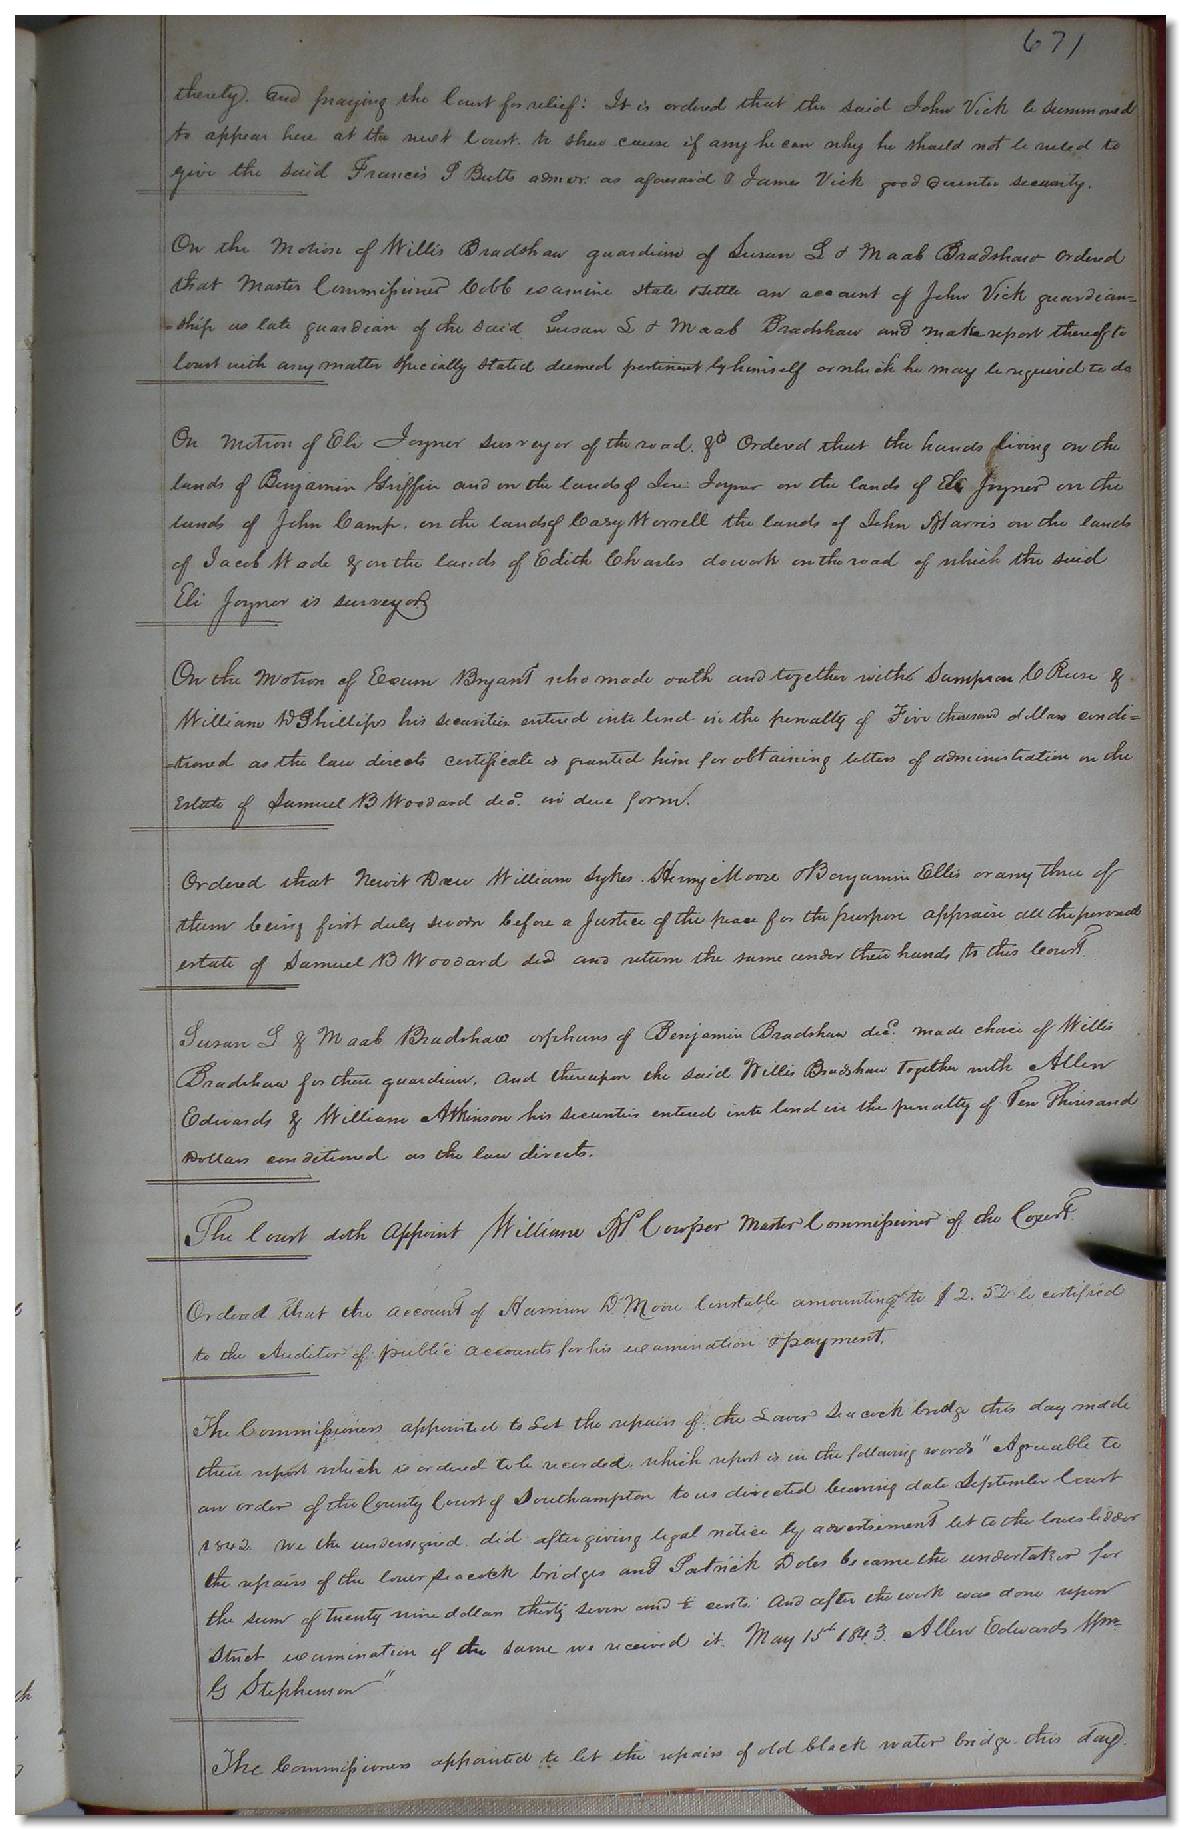 671
thereby. and praying the Court for relief: It is ordered that the said John Vick be summoned
to appear here at the next Court. to shew cause if any he can why he should not be ruled to
give the said Francis S Butts admor: as aforesaid & James Vick good counter security.
On the Motion of Willis Bradshaw guardian of Susan L & Maab Bradshaw ordered
that Master Commissioner Cobb examine state & settle an account of John Vick guardian=
=ship as late guardian of the said Susan L & Maab Bradshaw and make report thereof to
Court with any matter specially stated deemed pertinent by himself or which he may be required to do
On Motion of Eli Joyner surveyor of the road. &c Ordered that the hands living on the
lands of Benjamin Griffin and on the lands of Joyner on the lands of Eli Joyner on the
lands of John Camp. on the lands of Casy Worrell the lands of John Harris on the lands
of Jacob Wade & on the lands of Edith Charles do work on the road of which the said
Eli Joyner is surveyor
On the Motion of Exum Bryant who made oath and together with Sampson C Reese &
William D Phillips his securities entered into bond in the penalty of Five thousand dollars condi=
=tioned as the law directs certificate is granted him for obtaining letters of administration on the
Estate of Samuel B Woodard dec. in due form.
Ordered that Newit Drew William Sykes. Henry Moore & Benjamin Ellis or any three of
them being first duly sworn before a Justice of the peace for the purpose appraise all the personal
estate of Samuel B Woodard decd and return the same under their hands to this Court
Susan L & Maab Bradshaw orphans of Benjamin Bradshaw dec. made choice of Willis
Bradshaw for their guardian. and thereupon the said Willis Bradshaw together with Allen
Edwards & William Atkinson his securities entered into bond in the penalty of Ten Thousand
Dollars conditioned as the law directs.
The Court doth Appoint William H Cowper Master Commissioner of the Court
Ordered that the account of Harrison D Moore Constable amounting to $2.52 be certified
to the Auditor of public accounts for his examination & payment.
The Commissioners appointed to Let the repairs of the Lower Seacock bridge this day made
their report which is ordered to be recorded. which report is in the following words "Agreeable to
an order of the County Court of Southampton to us directed bearing date September Court
1842 We the undersigned. did after giving legal notice by advertisement let to the lowest bidder
the repairs of the lower Seacock bridges and Patrick Doles became the undertaker for
the sum of twenty nine dollars thirty seven and ½ cents. And after the work was done upon
strict examination of the same we received it. May 15th 1843. Allen Edwards Wm
G Stephenson"
The Commissioners appointed to let the repairs of old black water bridge this day.